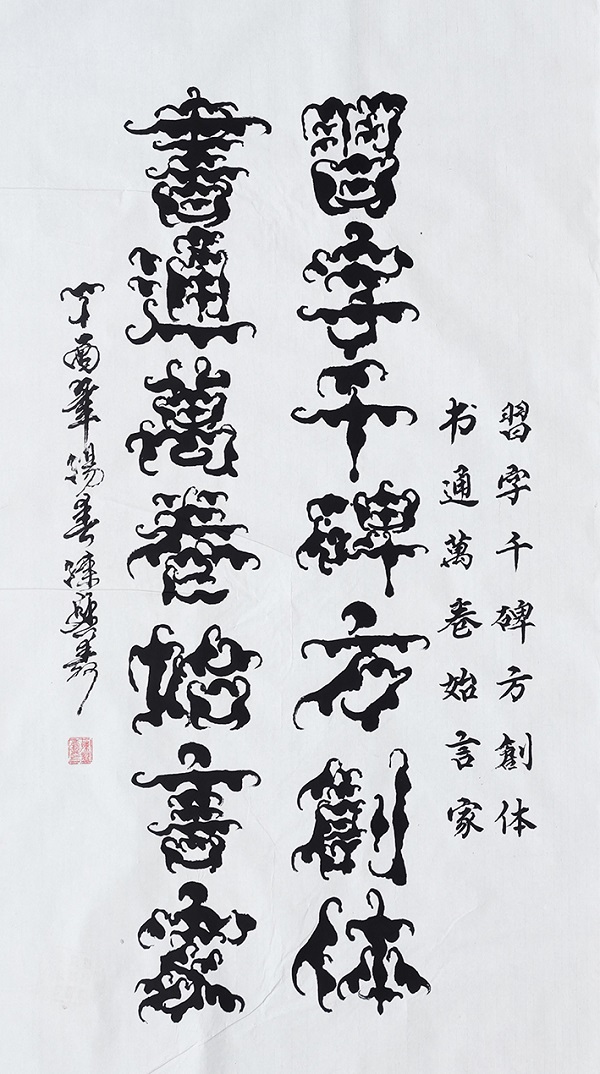 習字千碑方創体
书通萬卷始言家
習字千碑方創体
書通萬卷始言家
丁酉 春